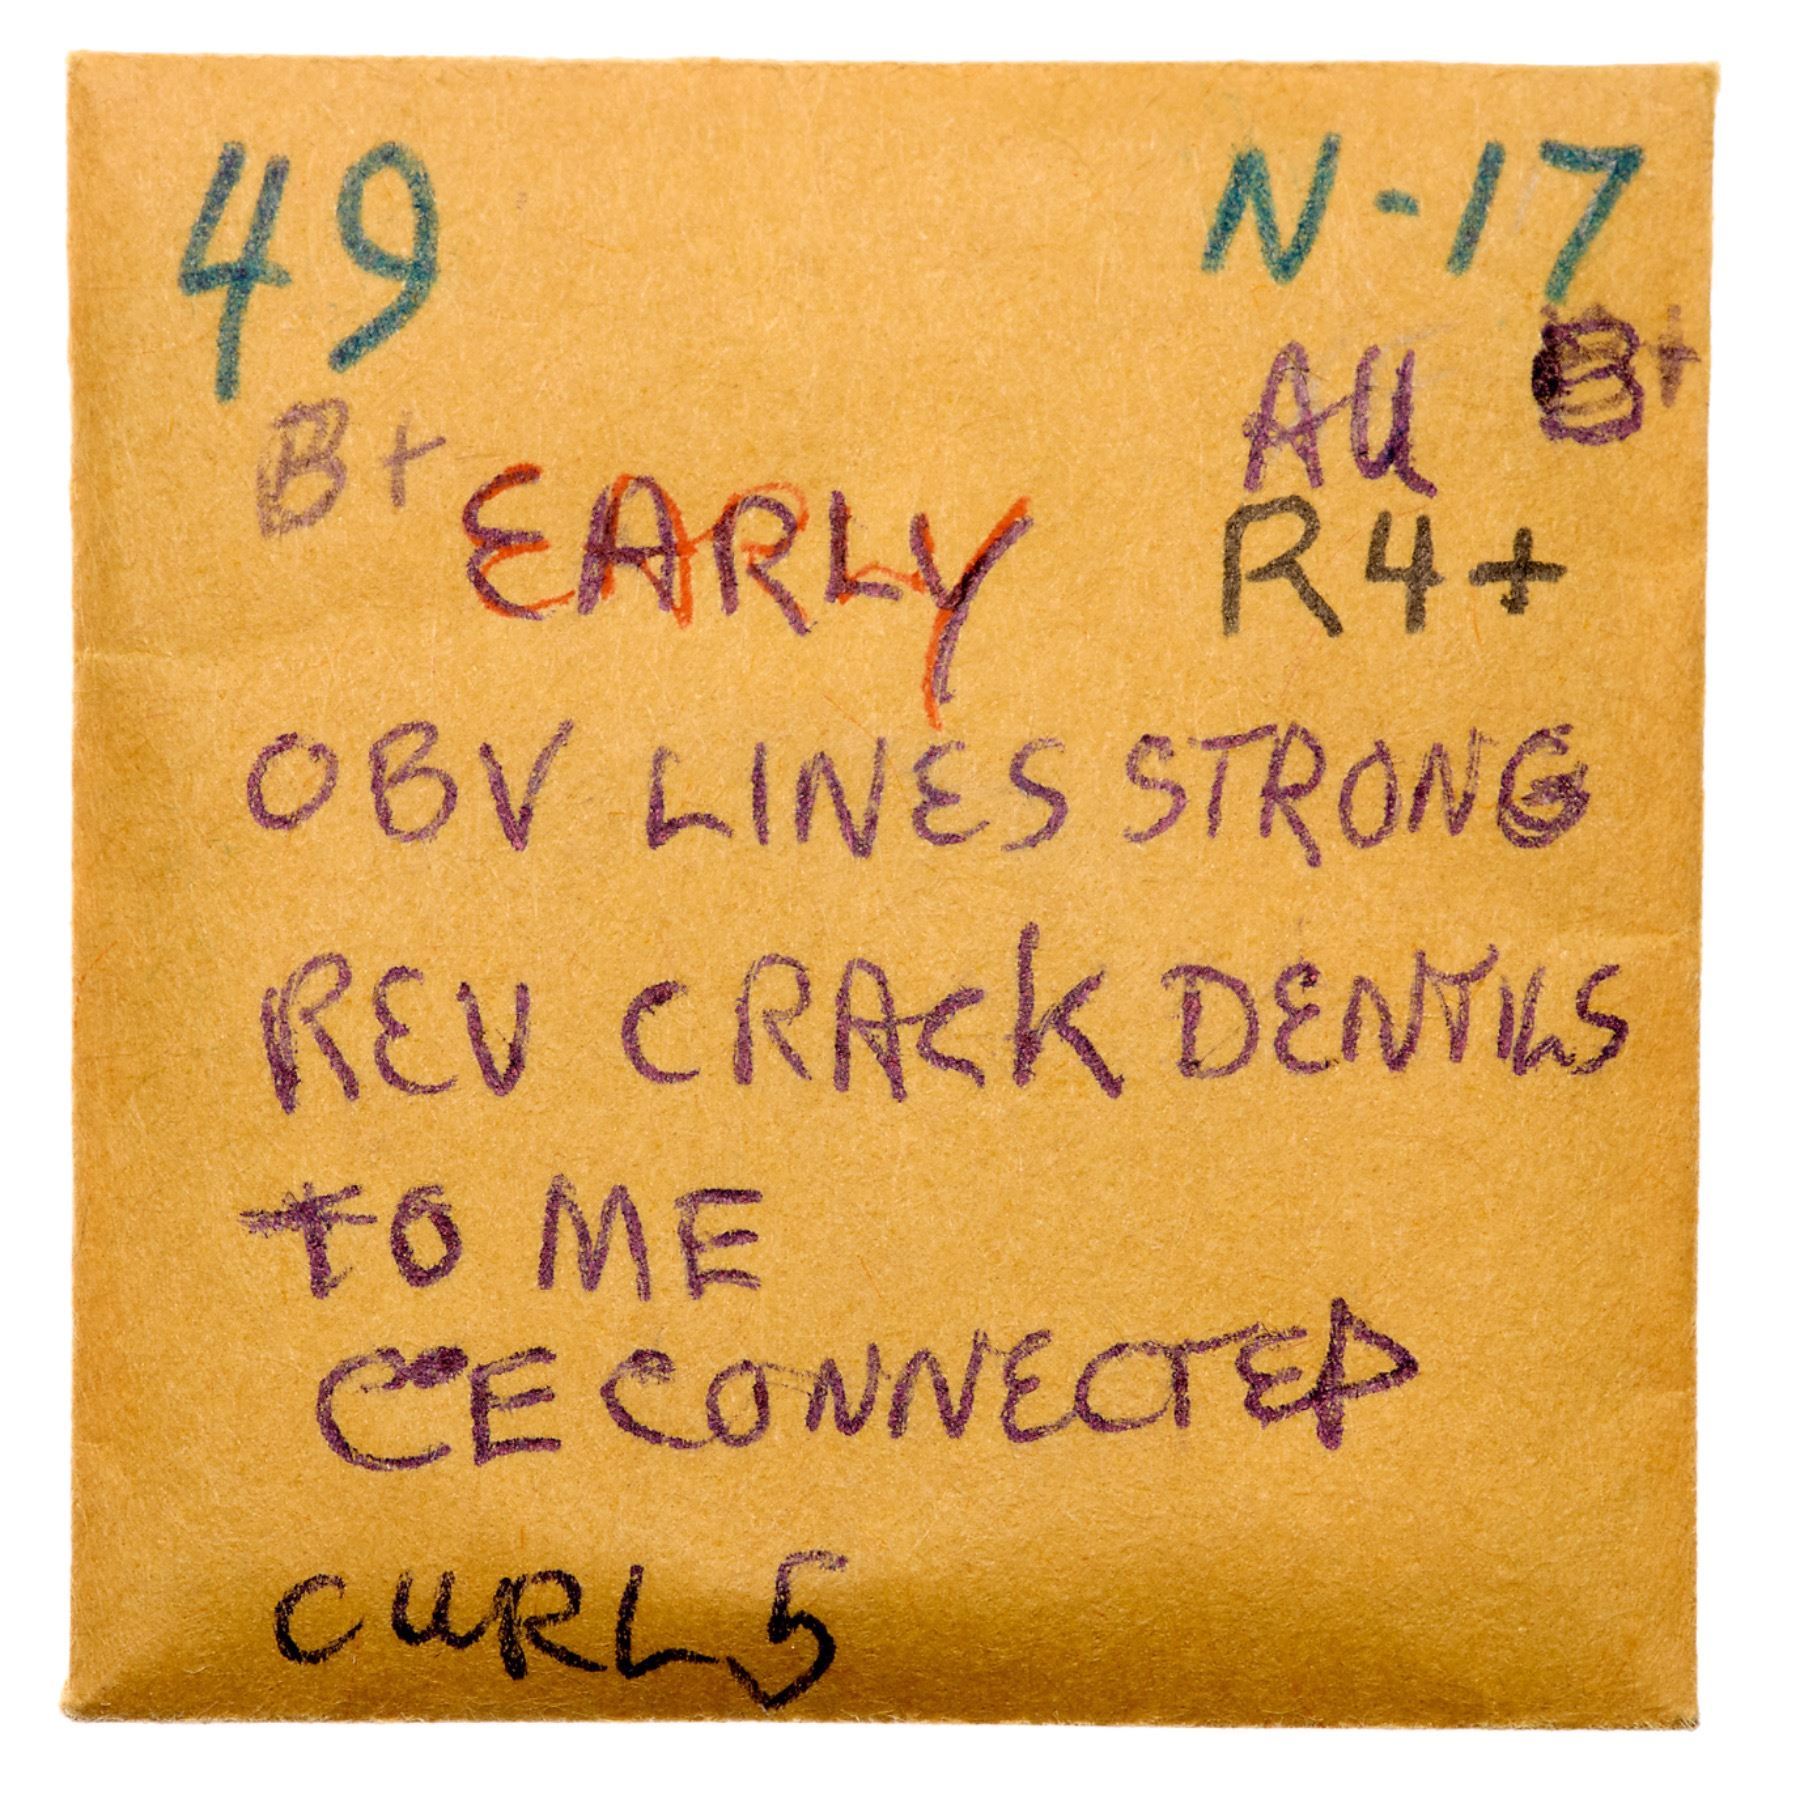 49 N-17
B+ AU B+
EARLY R4+
OBV LINES STRONG
REV CRACK DENTILS
TO ME
CE CONNECTED
CURL 5